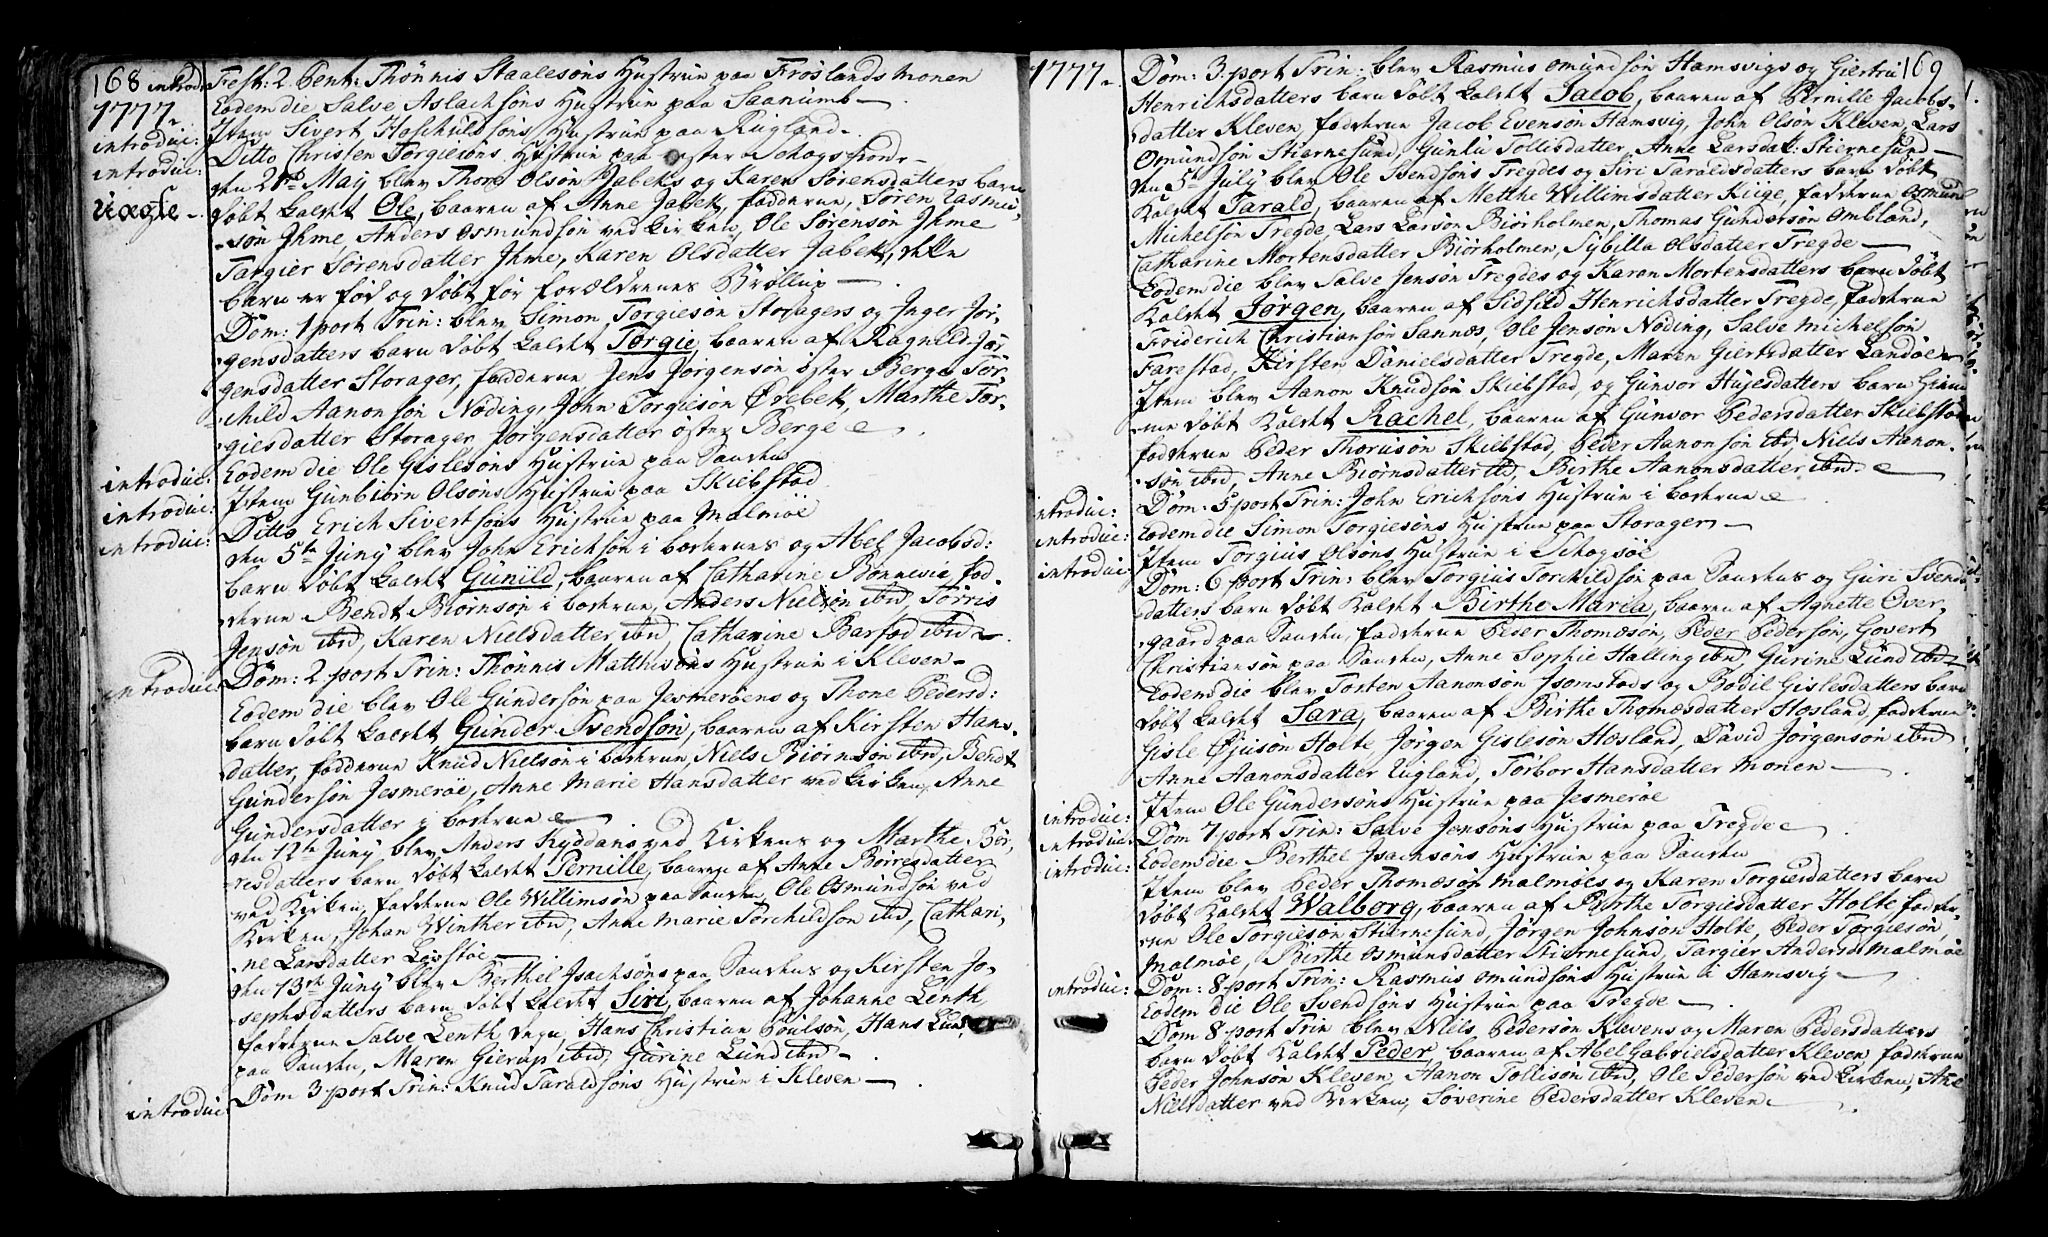 168 introd: Fest: 2 Pent: Thönnis Staalesöns Hustrue paa Fröslands Monen
1777 Eodem die Salve Aslachsöns Hustrue paa Saanumb
introduc: Item Sivert Haschuldsöns Hustrue paa Rügland
introduc: Ditto Christen Torgiesöns Hustrue paa Schogsfiord
Uægte den 21de May blev Thore Olsön Jabeks og Karen Sörensdatters barn
döbt kaldet Ole, baaren af Anne Jabek, fadderne, Sören Rasmu-
sön Ihme, Anders Osmundsön ved Kirken, Ole Sörensön Ihme
Targier Sörensdatter Ihme, Karen Olsdatter Jabek, dette
barn er föd og döbt för forældrenes Bröllup
Dom: 1 post Trin: blev Simon Torgiesön Storagers og Inger Jör-
gensdatters barn döbt kaldet Torgie, baaren af Ragnild Jör-
gensdatter Storager, fadderne Jens Jörgensön öster Berge Tor-
child Aanonsön Nöding, John Torgiesön Örebek, Marthe Tor-
giesdatter Storager Jörgensdatter öster Berge
introduc: Eodem die Ole Gislesöns Hustrue paa Sanden
introduc: Item Gunbiörn Olsöns Hustrue paa Skiebstad
introduc: Ditto Erich Sivertsöns Hustrue paa Malmöe
den 5te Juny blev John Erichsön i bodernes og Abel Jacobsd:
barn döbt kaldet Gunild, baaren af Catharine Bonnevie, fad-
derne Bendt Biörnsön i boderne, Anders Nielsön ibid, Torris
Jensön ibid, Karen Nielsdatter ibid Catharine Barfod ibid
introduc: Dom: 2 post Trin: Thönnis Matthisöns Hustrue i Kleven
Eodem die blev Ole Gundersön paa Jesmeröens og Thone Pedersd:
barn döbt kaldet Gunder Svendsön, baaren af Kirsten Hans-
datter, fadderne Knud Nielsön i boderne, Niels Biörnsön ibid, Bendt
Gundersön Jesmeröe, Anne Marie Hansdatter ved Kirken, Anne
Gundersdatter i boderne
den 12te Juny blev Anders Ryddans ved Kirkens og Marthe Bör-
resdatters barn döbt kaldet Pernille, baaren af Anne Börresdatter
ved Kirken, fadderne Ole Willimsön paa Sanden, Ole Osmundsön ved
Kirken, Johan Winther ibid, Anne Marie Torchildsön ibid, Cathari-
ne Larsdatter
den 13de Juny blev Berthel Isachsöns paa Sandens og Kirsten Jo-
sephsdatters barn döbt kaldet Siri, baaren af Johanne Lenth
fadderne Salve Lenth, Hans Christian Poulsön, Hans Lund
paa Sanden, Maren Gierup ibid, Gurine Lund ibid
introduc: Dom 3 post Trin: Knud Taraldsöns Hustrue i Kleven
1777 Dom: 3 post Trin: blev Rasmus Omundsön Hamsvigs og Giertru 169
Henrichsdatters barn döbt kaldet Jacob, baaren af Pernille Jacobs-
datter Kleven, fadderne Jacob Evensön Hamsvig, John Olsön Kleven, Lars
Osmundsön Stiernesund, Gunlu Tollisdatter, Anne Larsdat: Stiernesund
den 5te July blev Ole Svendsöns Tregdes og Siri Taraldsdatters barn döbt
kaldet Tarald, baaren af Metthe Willimsdatter Kiige, fadderne Osmund
Michelsön Tregde Lars Larsön Biörholmen, Thomas Gundersön Ombland,
Catharine Mortensdatter Biörholmen, Sybilla Olsdatter Tregde
Eodem die blev Salve Jensön Tregdes og Karen Mortensdatters barn döbt
kaldet Jörgen, baaren af Sidsel Henrichsdatter Tregde, fadderne
Friderich Christiansön Sannæs, Ole Jensön Nöding, Salve Michelsön
Farestad, Kirsten Danielsdatter Tregde, Maren Giertsdatter Landöe
Item blev Aanon Knudsön Skiebstad, og Gunvor Hujesdatters barn hiem-
me döbt kaldet Rachel, baaren af Gunvor Pedersdatter Skiebstad
fadderne Peder Thorusön Skiebstad, Peder Aanonsön ibid, Niels Aanon-
sön ibid, Anne Biörnsdatter ibid, Birthe Aanonsdatter ibid
introduc: Dom: 5 post Trin: John Erichsöns Hustrue i boderne
introduc: Eodem die Simon Torgiesöns Hustrue paa Storager
introduc: Item Torgius Olsöns Hustrue i Schogsöe
Dom: 6 post Trin: blev Torgius Torchildsön paa Sandens og Guri Svends-
datters barn döbt kaldet Birthe Maria, baaren af Agnette Over-
gaard paa Sanden, fadderne Peder Thomæsön, Peder Pedersön, Govert
Christiansön paa Sanden, Anne Sophie Halling ibid, Gurine Lund ibid
Eodem die blev Tosten Aanonsön Isomstads og Bodil Gislesdatters barn
döbt kaldet Sara, baaren af Birthe Thomæsdatter Hosland, fadderne
Gisle Öjusön Holte, Jörgen Gislesön Hosland, David Jörgensön ibid
Anne Aanonsdatter Rugland, Torbor Hansdatter Monen
introduc: Item Ole Gundersöns Hustrue paa Jesmeröe
introduc: Dom 7 post Trin: Salve Jensöns Hustrue paa Tregde
introduc: Eodem die Berthel Isachsöns Hustrue paa Sanden
Item blev Peder Thomæsön Malmöes og Karen Torgiesdatters barn
döbt kaldet Walborg, baaren af Birthe Torgiesdatter Holte, fadder-
ne Ole Torgiesön Stiernesund, Jörgen Johnsön Holte, Peder Torgiesön,
Malmöe, Birthe Osmunsdatter Stiernesund, Targier Andersd Malmöe
introduc: Dom: 8 post Trin: Rasmus Omundsöns Hustrue i Hamsvig
Eodem die Ole Svendsöns Hustrue paa Tregde
Dom 8 post Trin blev Niels Pedersön Klevens og Maren Pedersdatters
barn döbt kaldet Peder, baaren af Abel Gabrielsdatter Kleven, fadderne
Peder Johnsön Kleven, Aanon Tollisön ibid, Ole Pedersön ved Kirken, Ane
Nielsdatter ved Kirken, Söverine Pedersdatter Kleven